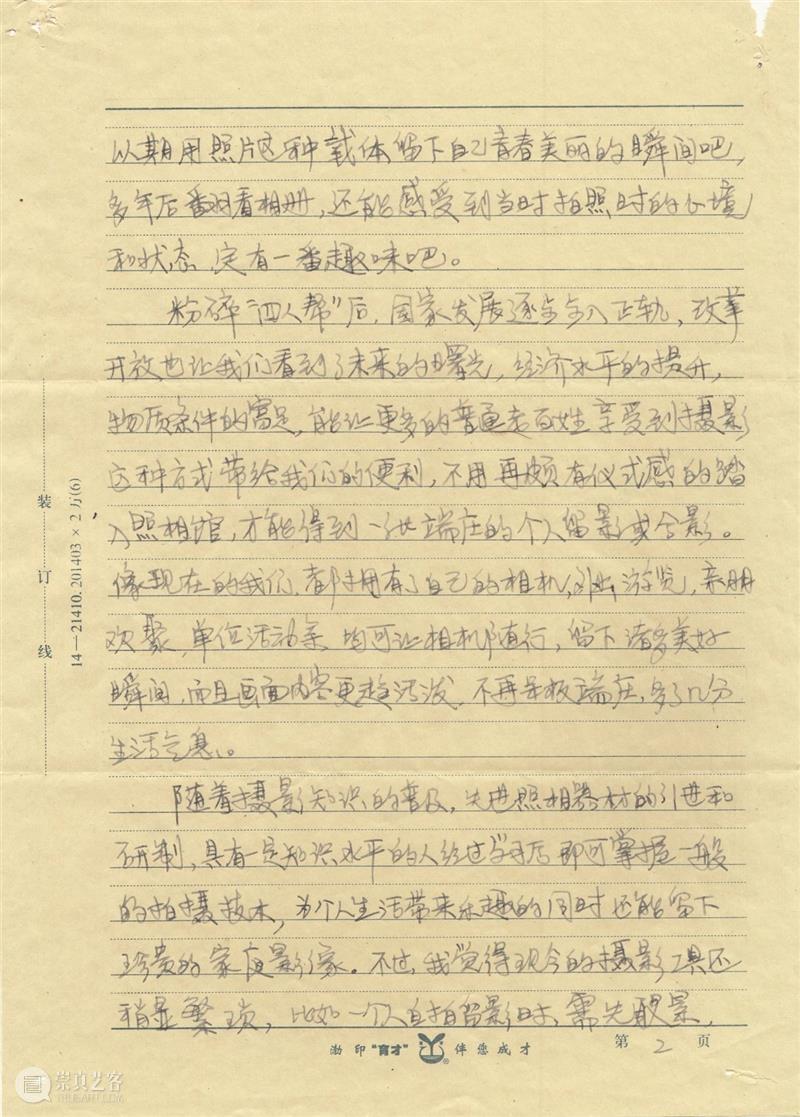 以期用照片这种载体留下自己青春美丽的瞬间吧,
多年后翻看相册,还能感受到当时拍照时的心境
和状态,定有一番趣味吧。
粉碎“四人帮”后,国家发展逐步步入正轨,改革
开放也让我们看到了未来的曙光,经济水平的提升,
物质条件的富足,能让更多的普通老百姓享受到摄影
这种方式带给我们的便利,不用再颇有仪式感的踏
入照相馆,才能得到一张端庄的个人留影或合影。
像现在的我们,都拥有了自己的相机,外出游览,亲朋
欢聚,单位活动等,均可让相机随行,留下诸多美好
瞬间,而且画面内容更趋活泼,不再呆板端庄,多了几分
生活气息。
随着摄影知识的普及,先进照相器材的引进和
研制,具有一定知识水平的人经过学习后即可掌握一般
的拍摄技术,为个人生活带来乐趣的同时还能留下
珍贵的家庭影像。不过,我觉得现今的摄影工具还
稍显繁琐,比如一个人自拍留影时,需先取景,
装订线
14—21410.201403×2万(6)
渤印“育才” ® 伴您成才
第2页
崇真艺客